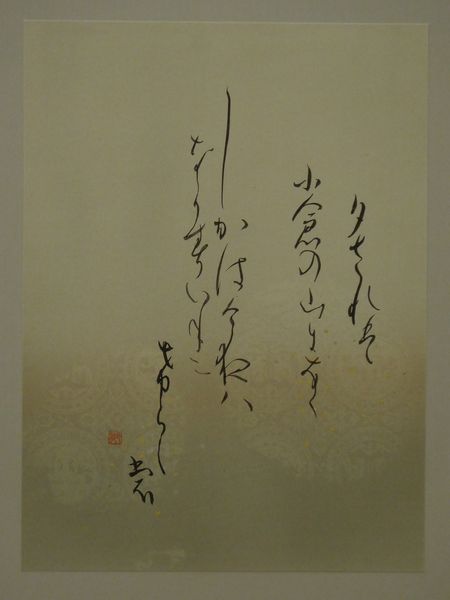 夕されは
小倉の山になく
しかは今夜ハ
なかすいねに
けらし
裳